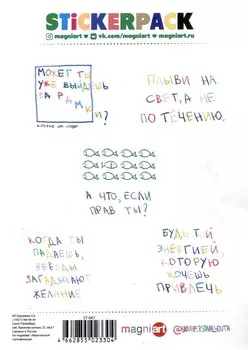 STiCKERPACK
magniart vk.com/magniart magniart.ru
МОЖЕТ ТЫ
УЖЕ ВЫЙДЕШЬ
ЗА РАМКИ?
ПЛЫВИ НА
СВЕТ, А НЕ
ПО ТЕЧЕНИЮ.
А ЧТО, ЕСЛИ
ПРАВ ТЫ?
КОГДА ТЫ
ПАДАЕШЬ,
ЗВЁЗДЫ
ЗАГАДЫВАЮТ
ЖЕЛАНИЕ
БУДЬ ТОЙ
ЭНЕРГИЕЙ,
КОТОРУЮ
ХОЧЕШЬ
ПРИВЛЕЧЬ
4 662855 023304
magniart